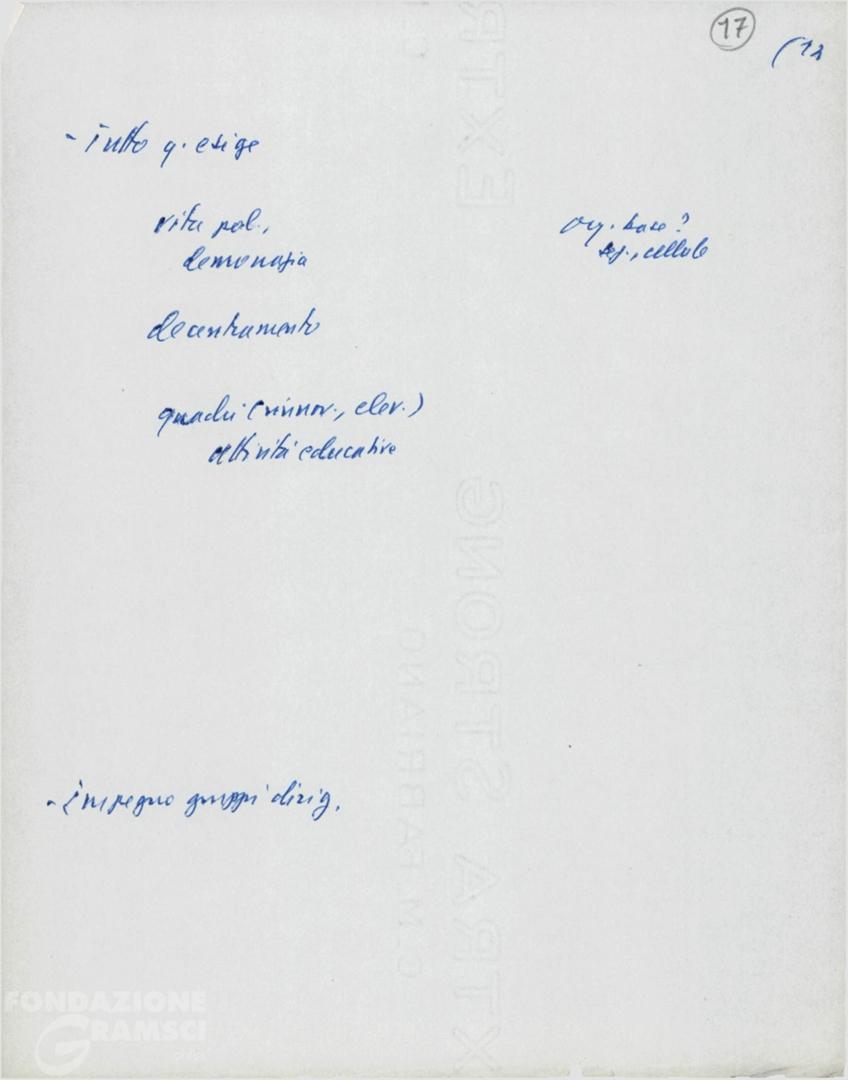 17
(12
- Tutto q. esige
vita pol.,
democrazia
org. base?
sez., cellule
decentramento
quadri (rinnov., elev.)
attività educative
- impegno gruppi dirig.
EXTRA STRONG
G. M. FABRIANO
EXTR
FONDAZIONE
GRAMSCI